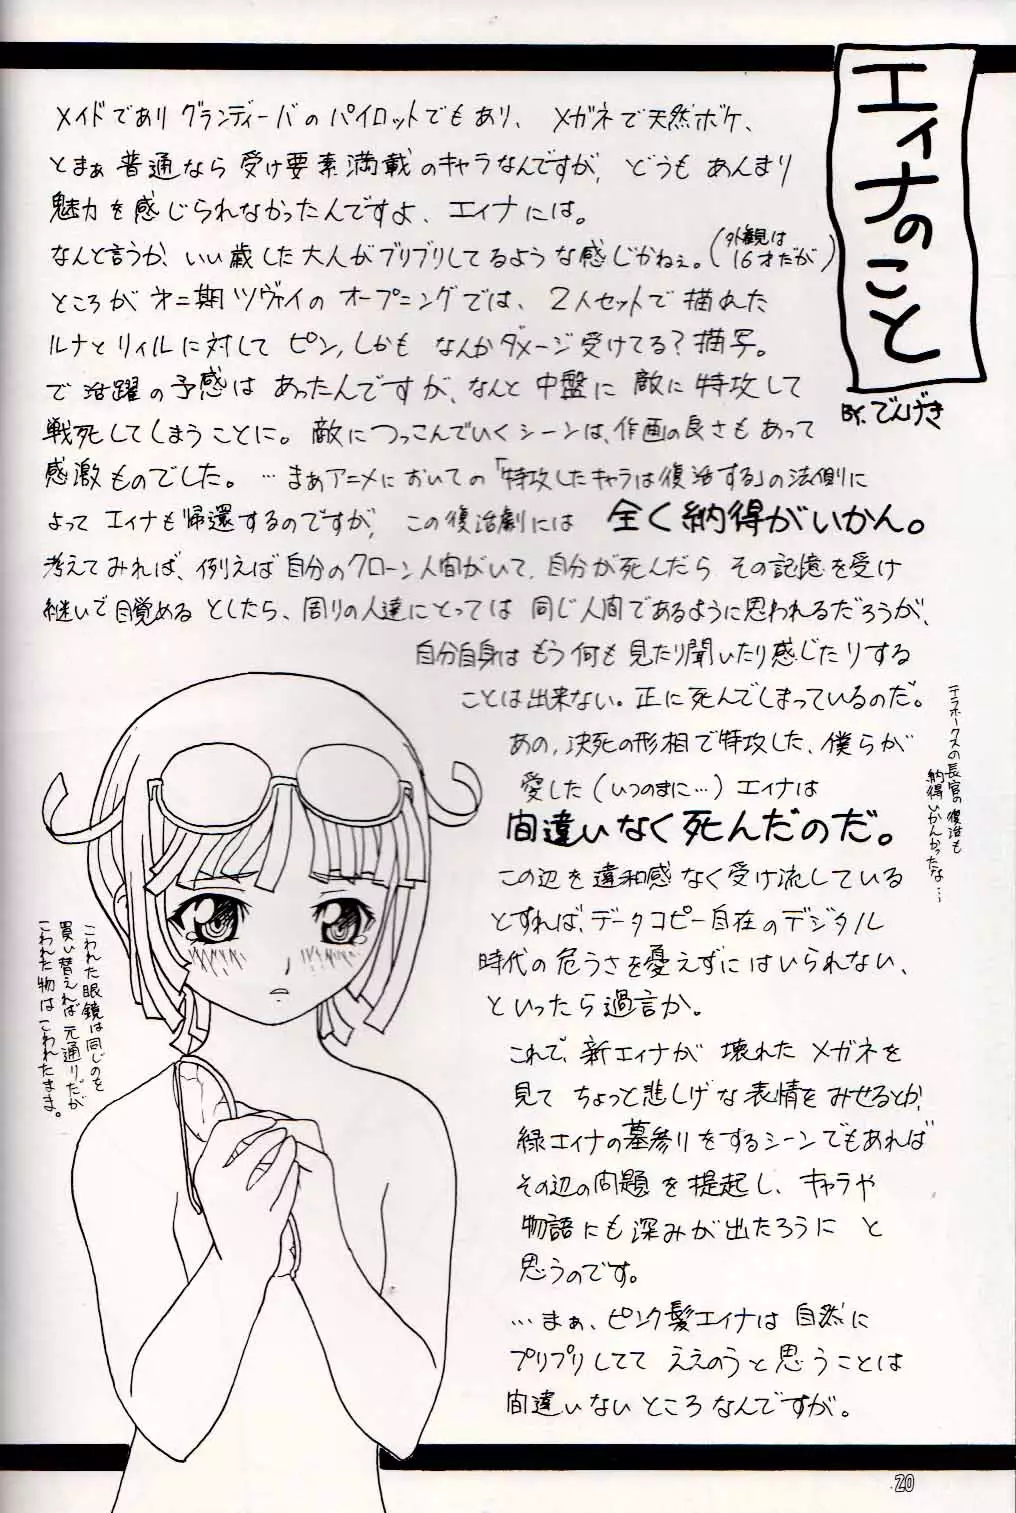 エィナのこと
BY.でんげき
メイドでありグランディーバのパイロットでもあり、メガネで天然ボケ、
とまぁ普通なら受け要素満載のキャラなんですが、どうもあんまり
魅力を感じられなかったんですよ、エィナには。
なんと言うか、いい歳した大人がブリブリしてるような感じかねぇ。(外観は16才だが)
ところが第二期ツヴァイのオープニングでは、2人セットで描かれた
ルナとリィルに対してピン,しかもなんかダメージ受けてる?描写。
で活躍の予感はあったんですが、なんと中盤に敵に特攻して
戦死してしまうことに。敵につっこんでいくシーンは、作画の良さもあって
感激ものでした。…まぁアニメにおいての「特攻したキャラは復活する」の法則に
よってエィナも帰還するのですが、この復活劇には全く納得がいかん。
考えてみれば、例えば自分のクローン人間がいて、自分が死んだらその記憶を受け
継いで目覚めるとしたら、周りの人達にとっては同じ人間であるように思われるだろうが、
自分自身はもう何も見たり聞いたり感じたりする
ことは出来ない。正に死んでしまっているのだ。
あの,決死の形相で特攻した、僕らが
愛した(いつのまに…)エィナは
間違いなく死んだのだ。
この辺を違和感なく受け流している
とすれば、データコピー自在のデジタル
時代の危うさを憂えずにはいられない、
といったら過言か。
これで、新エィナが壊れたメガネを
見てちょっと悲しげな表情をみせるとか、
緑エィナの墓参りをするシーンでもあれば
その辺の問題を提起し、キャラや
物語にも深みが出たろうにと
思うのです。
…まぁ、ピンク髪エィナは自然に
プリプリしててええのうと思うことは
間違いないところなんですが。
テラホークスの長官の復活も
納得いかんかったな…
こわれた眼鏡は同じのを
買い替えれば元通りだが
こわれた物はこわれたまま。
20